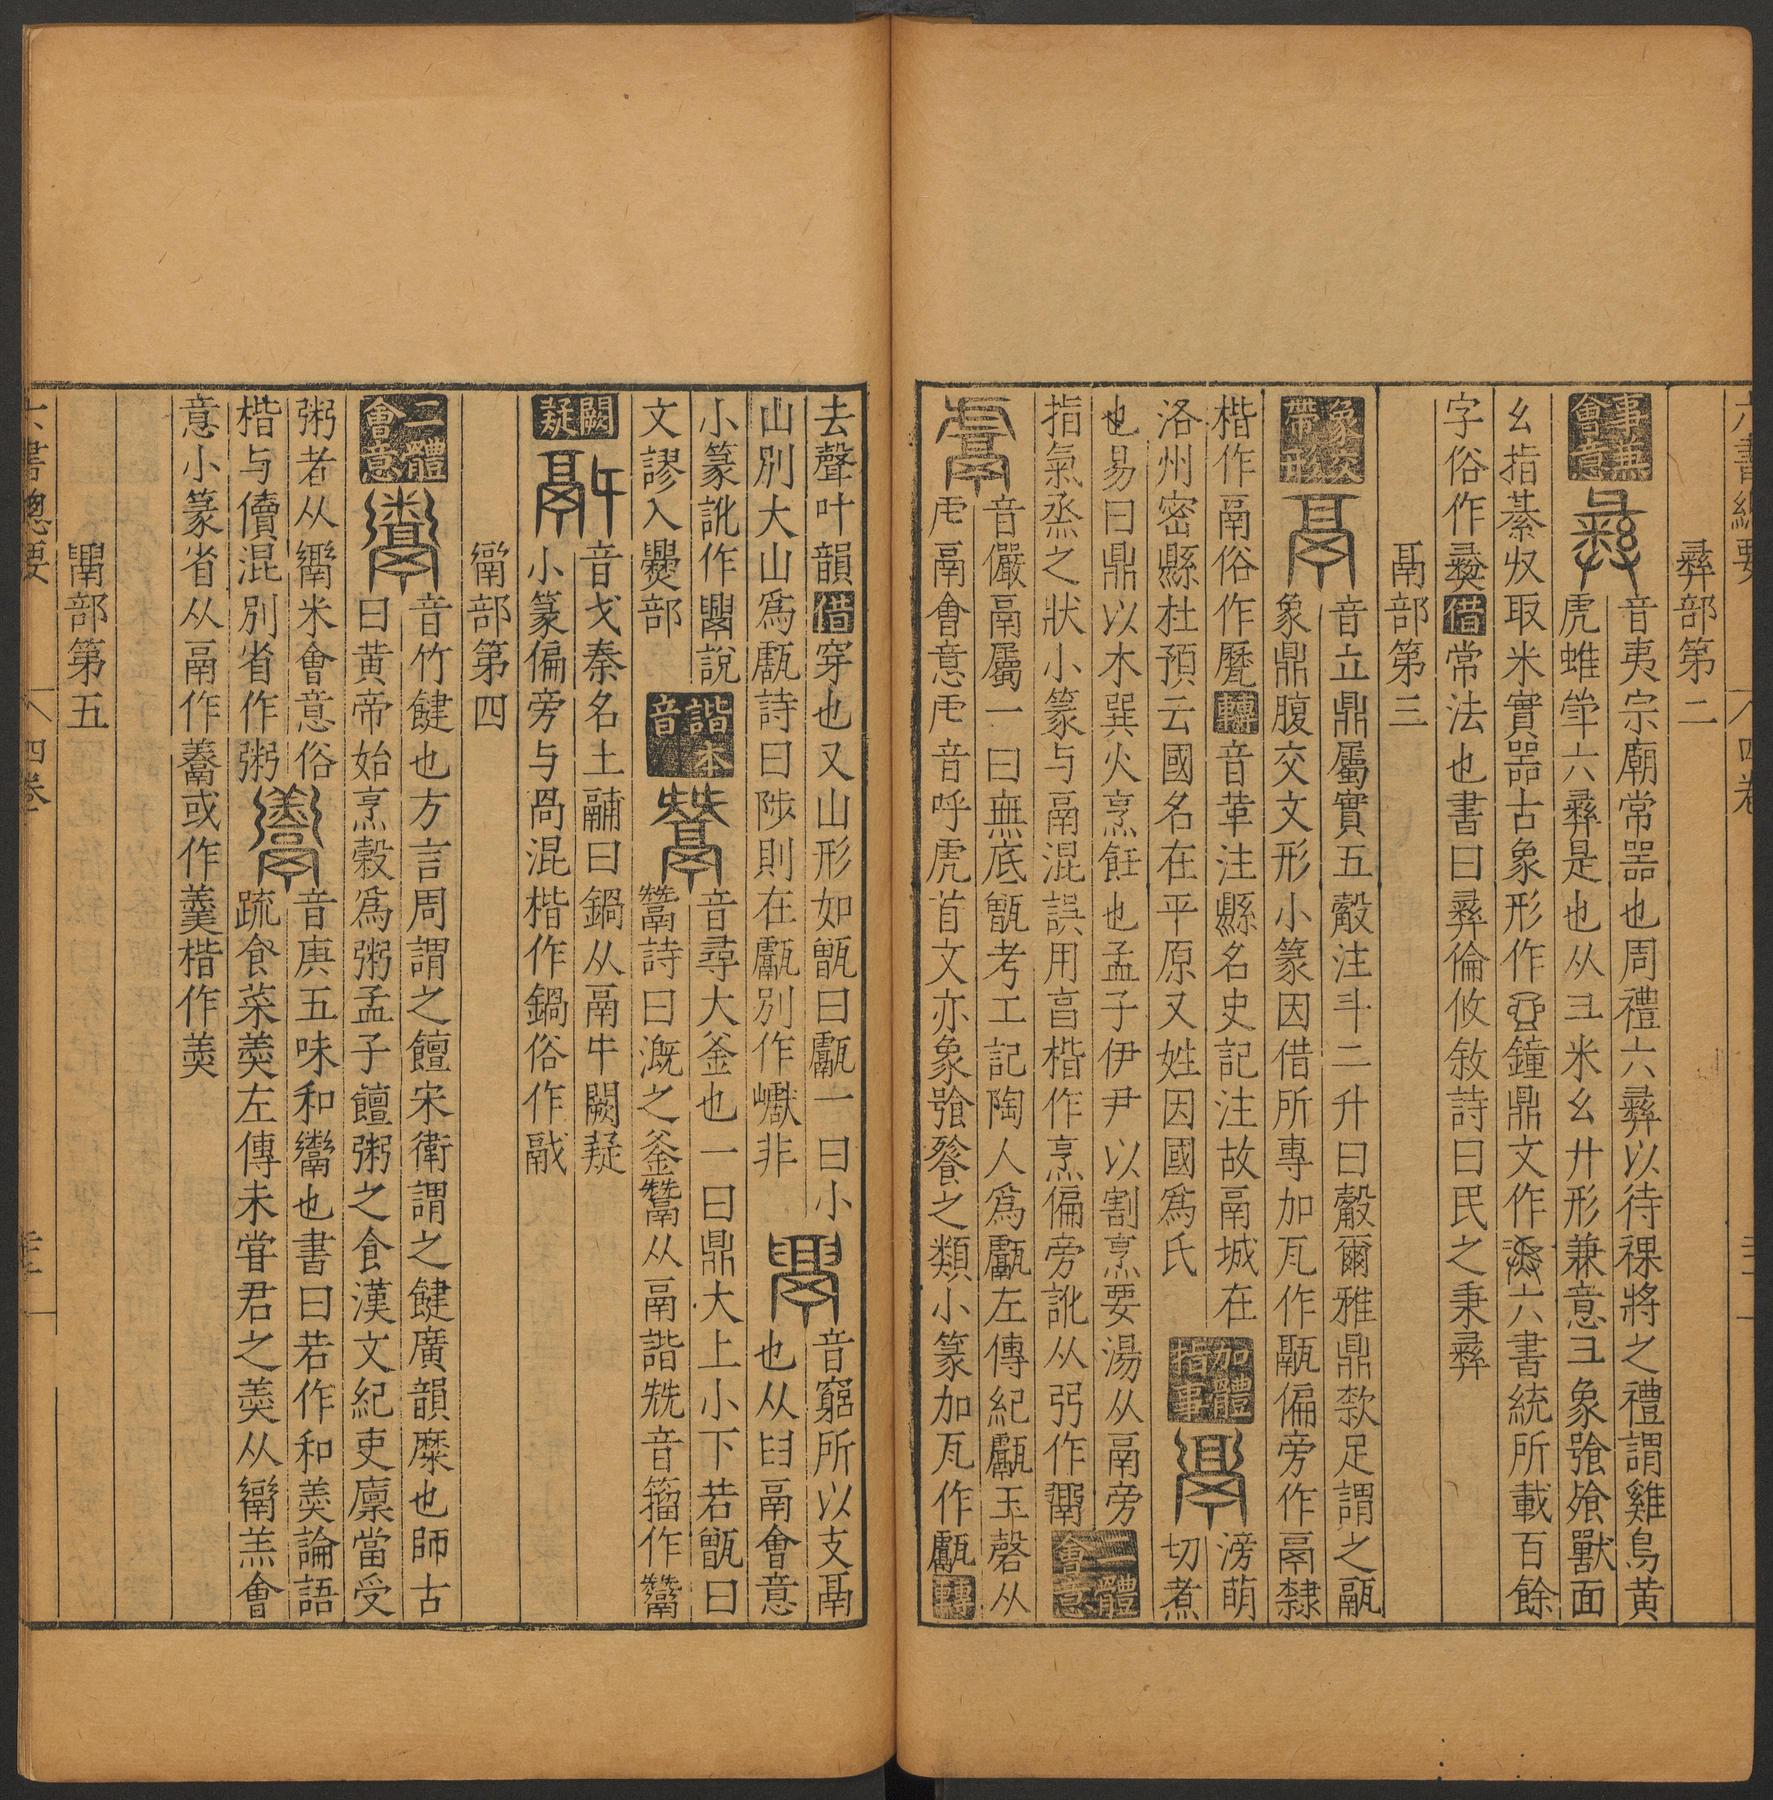 彝部第二
事兼會意
音夷宗廟常器也周禮六彝以待祼將之禮謂雞鳥黃
虎蜼斝六彝是也从彑米幺廾形兼意彑象獸面
幺指綦収取米實器古象形作鐘鼎文作六書統所載百餘
字俗作彞借常法也書曰彝倫攸敘詩曰民之秉彝
鬲部第三
音立鼎屬實五觳注斗二升曰觳爾雅鼎款足謂之鬲
象鼎腹交文形小篆因借所專加瓦作䰛偏旁作鬲隸
楷作鬲俗作䰛轉音革注縣名史記注故鬲城在
洛州密縣杜預云國名在平原又姓因國爲氏
加體指事
滂萌
切煮
也易曰鼎以木巽火烹飪也孟子伊尹以割烹要湯从鬲旁
指氣烝之狀小篆与鬲混誤用亯楷作烹偏旁訛从弜作䰜
二體會意
音儼鬲屬一曰無底甑考工記陶人爲甗左傳紀甗玉磬从
虍鬲會意虍音呼虎首文亦象之類小篆加瓦作甗轉
去聲叶韻借穿也又山形如甑曰甗一曰小
音窮所以支鬲
山別大山爲甗詩曰陟則在甗別作巘非
也从𦥑鬲會意
小篆訛作說
文謬入爨部
諧本音
音尋大釜也一曰鼎大上小下若甑曰
鬵詩曰漑之釜鬵从鬲諧兟音籀作
闕疑
音戈秦名土鬴曰鍋从鬲闕疑
小篆偏旁与咼混楷作鍋俗作
䰜部第四
二體會意
音竹鍵也方言周謂之饘宋衛謂之鍵廣韻糜也師古
曰黃帝始烹穀爲粥孟子饘粥之食漢文紀吏廩當受
粥者从䰜米會意俗
音庚五味和鬻也書曰若作和羹論語
楷与儥混別省作粥
疏食菜羹左傳未嘗君之羹从䰜羔會
意小篆省从鬲作或作羹楷作羮
部第五
六書總要
四卷